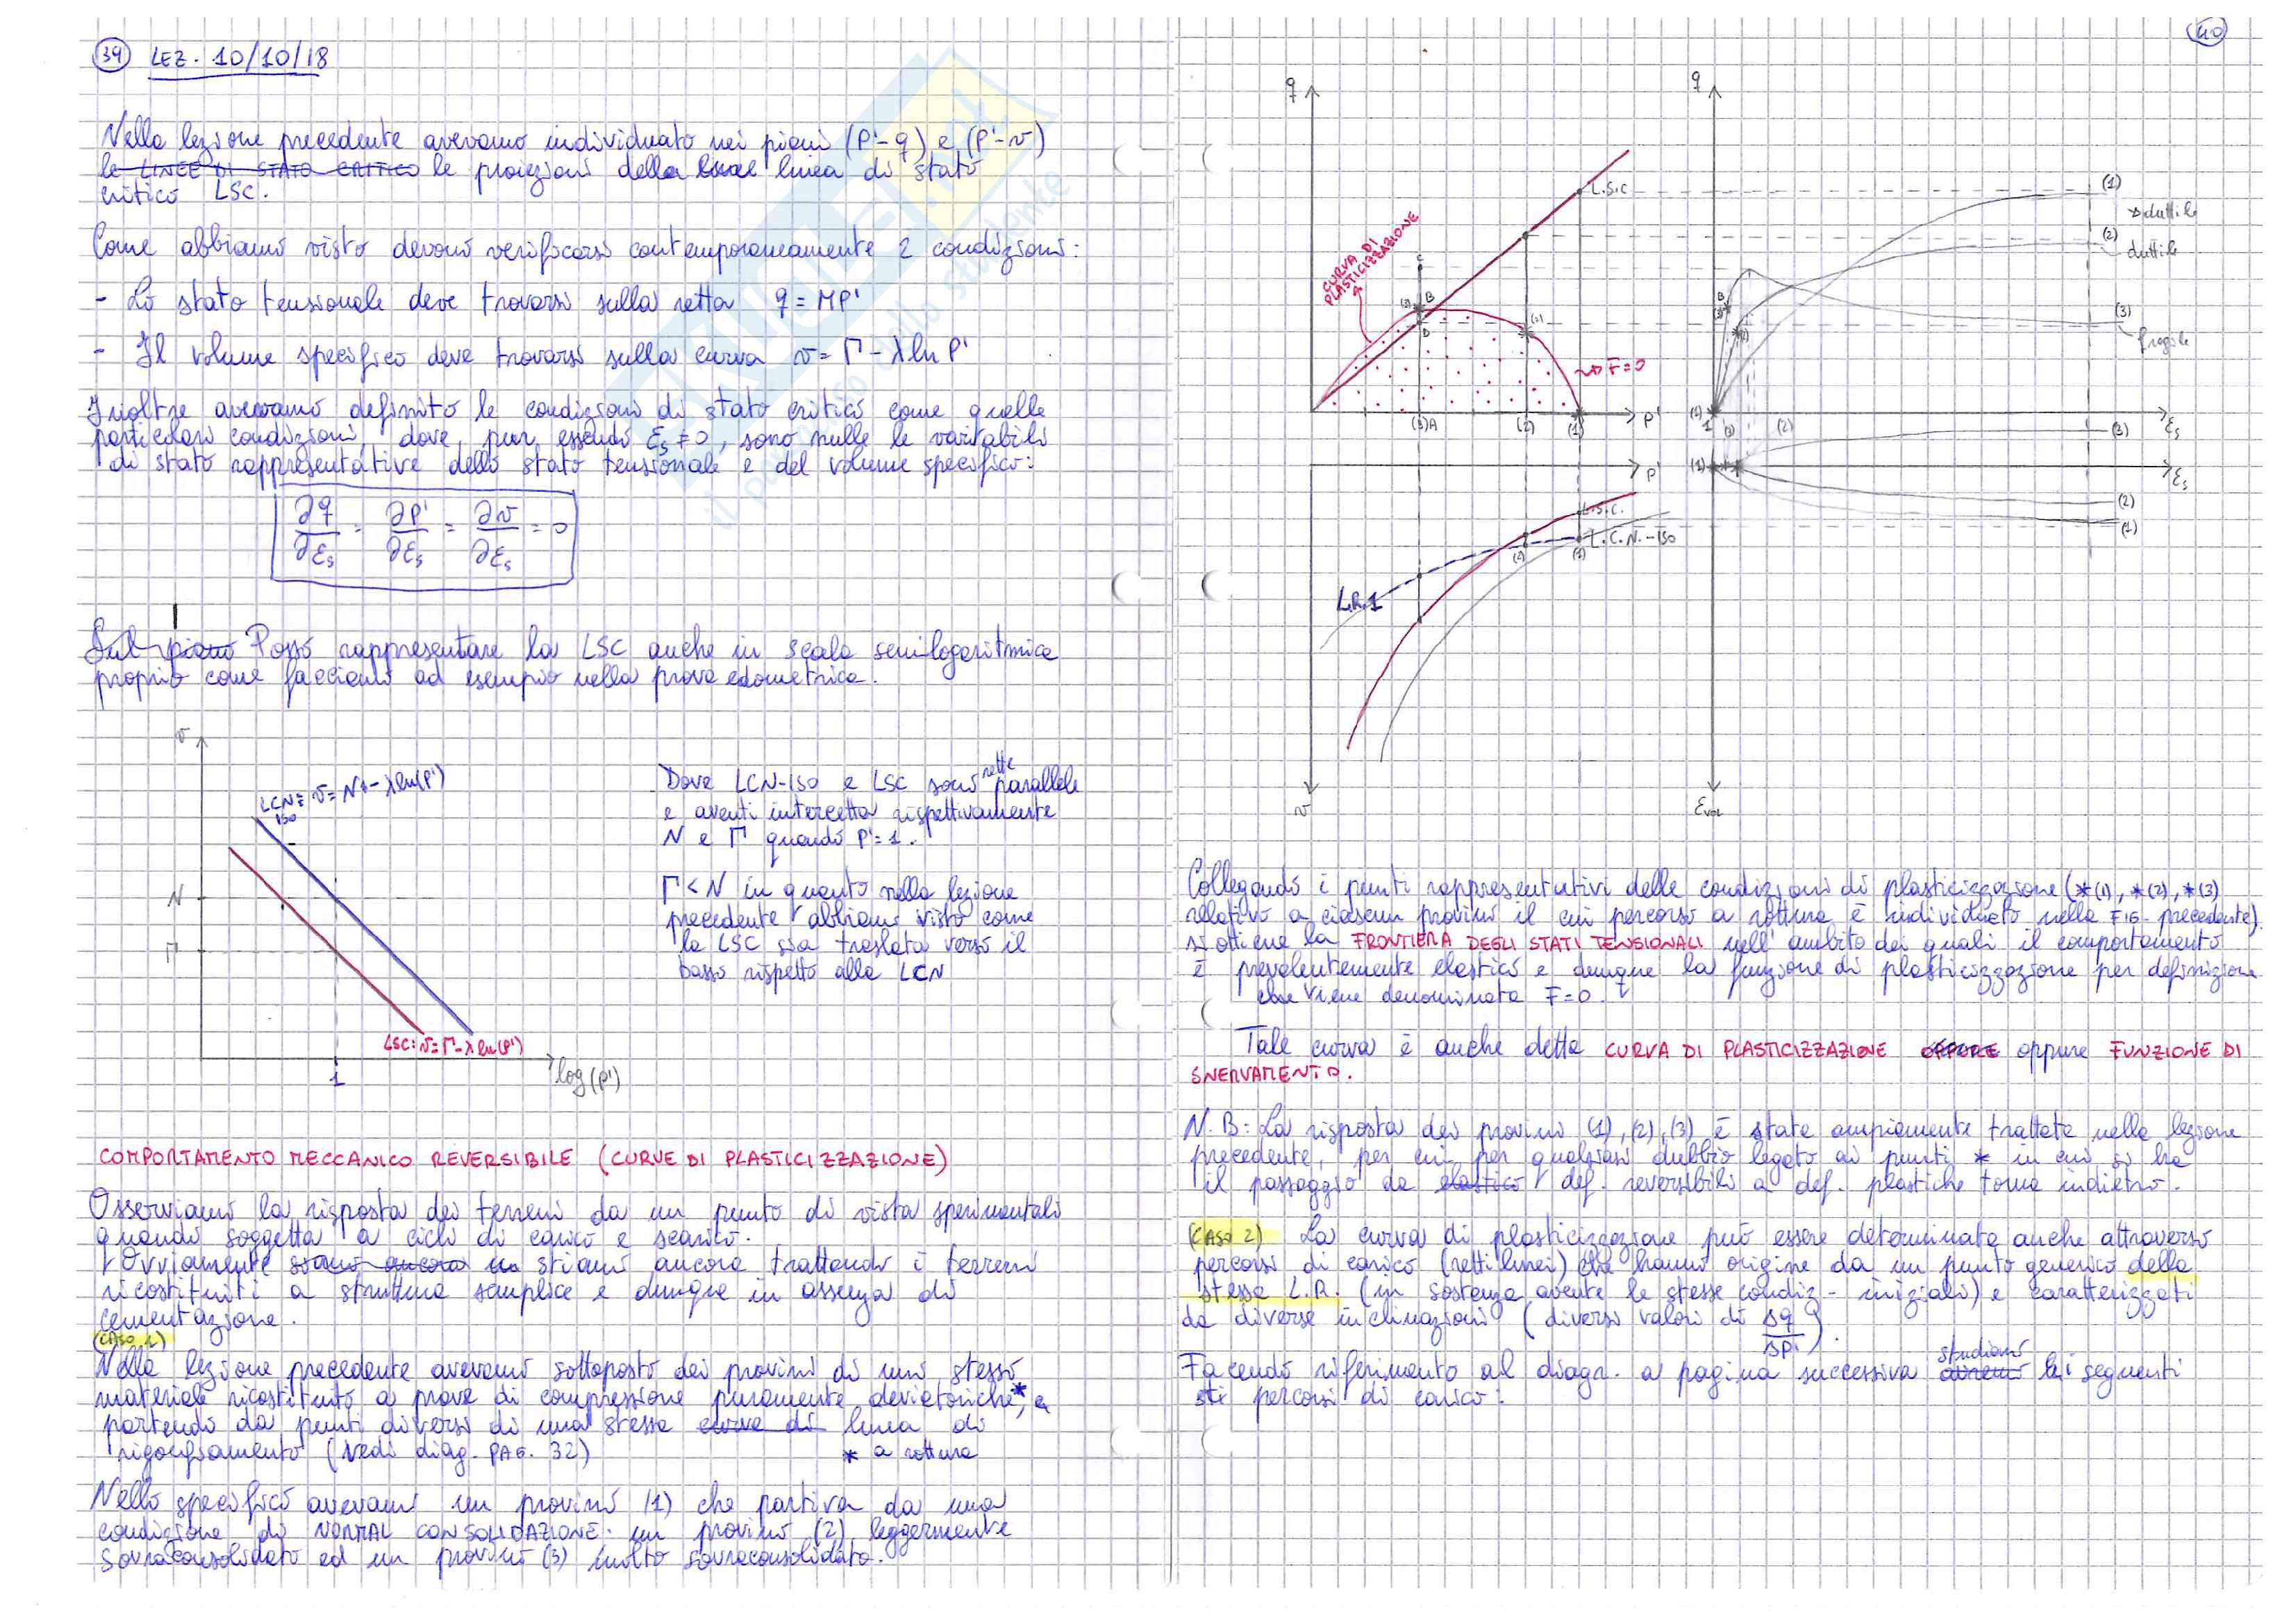 39 LEZ. 10/10/18
Nella lezione precedente avevamo individuato nei piani (P'-q) e (P'-v)
le LINEE DI STATO CRITICO le proiezioni della linea di stato
critico LSC.
Come abbiamo visto devono verificarsi contemporaneamente 2 condizioni:
- Lo stato tensionale deve trovarsi sulla retta q = MP'
- Il volume specifico deve trovarsi sulla curva v = Γ - λ ln P'
Inoltre avevamo definito le condizioni di stato critico come quelle
particolari condizioni, dove, pur essendo εs ≠ 0, sono nulle le variabili
di stato rappresentative dello stato tensionale e del volume specifico:
∂q/∂εs = ∂P'/∂εs = ∂v/∂εs = 0
Sul piano Posso rappresentare la LSC anche in scala semilogaritmica
proprio come facciamo ad esempio nella prova edometrica.
v
LCN ISO: v = N - λ ln(P')
N
Γ
LSC: v = Γ - λ ln(P')
1
log(P')
Dove LCN-ISO e LSC sono rette parallele
e aventi intercetta rispettivamente
N e Γ quando P'=1.
Γ < N in quanto nella lezione
precedente abbiamo visto come
la LSC sia traslata verso il
basso rispetto alla LCN
COMPORTAMENTO MECCANICO REVERSIBILE (CURVE DI PLASTICIZZAZIONE)
Osserviamo la risposta dei terreni da un punto di vista sperimentali
quando soggetta a cicli di carico e scarico.
Ovviamente siamo ancora stiamo ancora trattando i terreni
ricostituiti a struttura semplice e dunque in assenza di
cementazione.
(CASO 1)
Nella lezione precedente avevamo sottoposto dei provini di uno stesso
materiale ricostituito a prove di compressione puramente deviatoriche*, a
partendo da punti diversi di una stessa curva di linea di
rigonfiamento (vedi diag. PAG. 32)
* a rottura
Nello specifico avevamo un provino (1) che partiva da una
condizione di NORMAL CONSOLIDAZIONE; un provino (2) leggermente
sovraconsolidato ed un provino (3) molto sovraconsolidato.
40
q
CURVA DI
PLASTICIZZAZIONE
L.S.C
C
(3) B
D
(2)
F=0
(3)A
(2)
(1)
P'
q
(1)
duttile
(2)
duttile
B
(3)
(2)
(3)
fragile
(1)
(2)
εs
(3)
(1)
εs
(2)
(1)
P'
L.S.C.
L.C.N.-ISO
(2)
(1)
L.R.1
v
εvol
Collegando i punti rappresentativi delle condizioni di plasticizzazione (*(1), *(2), *(3)
relativo a ciascun provino il cui percorso a rottura è individuato nella FIG. precedente).
si ottiene la FRONTIERA DEGLI STATI TENSIONALI nell'ambito dei quali il comportamento
è prevalentemente elastico e dunque la funzione di plasticizzazione per definizione
che viene denominata F=0.
Tale curva è anche detta CURVA DI PLASTICIZZAZIONE OPPURE oppure FUNZIONE DI
SNERVAMENTO.
N.B: La risposta dei provini (1), (2), (3) è stata ampiamente trattata nella lezione
precedente, per cui per qualsiasi dubbio legato ai punti * in cui si ha
il passaggio da elastico def. reversibili a def. plastiche torna indietro.
(CASO 2) La curva di plasticizzazione può essere determinata anche attraverso
percorsi di carico (rettilinei) che hanno origine da un punto generico della
stessa L.R. (in sostanza avente le stesse condiz- iniziali) e caratterizzati
da diverse inclinazioni (diversi valori di Δq/ΔP').
Facendo riferimento al diagr. a pagina successiva studiamo i seguenti
percorsi di carico: